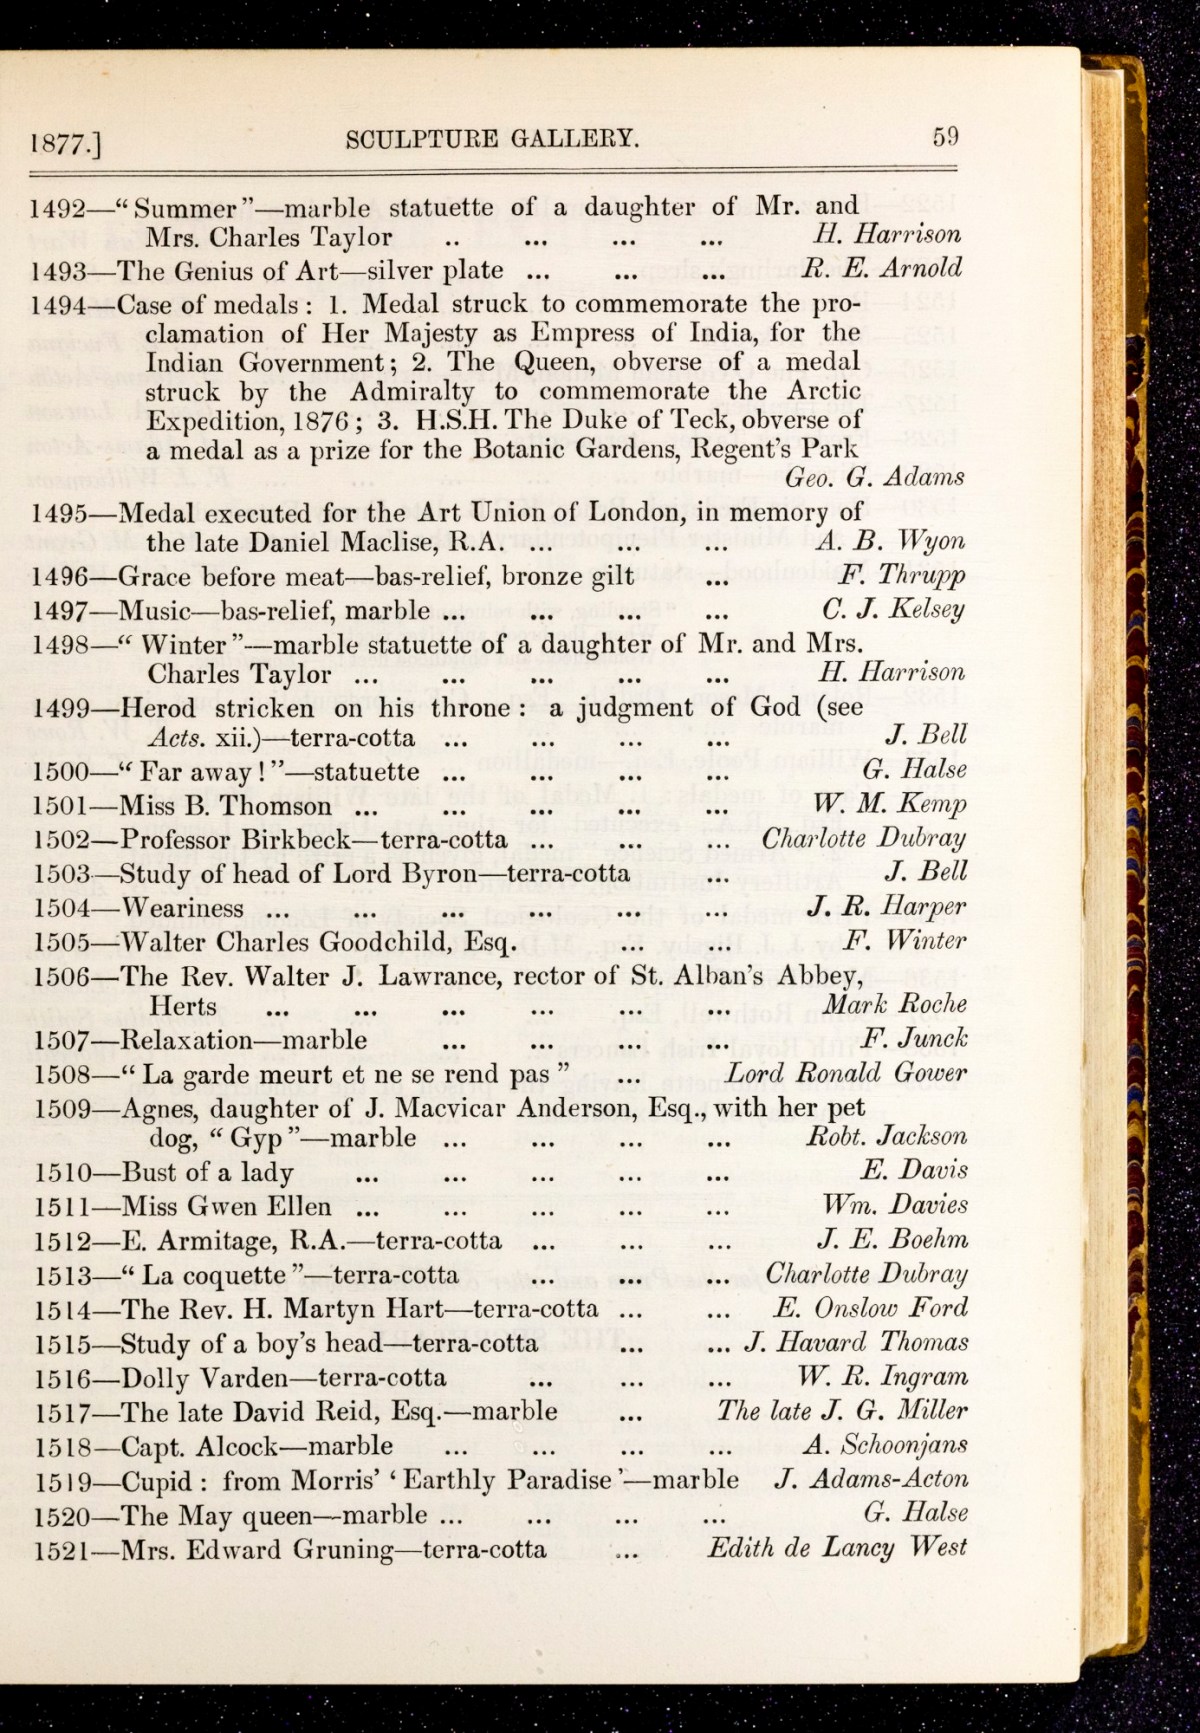 1877.] SCULPTURE GALLERY. 59
1492—“Summer”—marble statuette of a daughter of Mr. and
Mrs. Charles Taylor .. ... ... ... H. Harrison
1493—The Genius of Art—silver plate ... ... ... R. E. Arnold
1494—Case of medals: 1. Medal struck to commemorate the pro-
clamation of Her Majesty as Empress of India, for the
Indian Government; 2. The Queen, obverse of a medal
struck by the Admiralty to commemorate the Arctic
Expedition, 1876; 3. H.S.H. The Duke of Teck, obverse of
a medal as a prize for the Botanic Gardens, Regent's Park
Geo. G. Adams
1495—Medal executed for the Art Union of London, in memory of
the late Daniel Maclise, R.A. ... ... ... A. B. Wyon
1496—Grace before meat—bas-relief, bronze gilt ... F. Thrupp
1497—Music—bas-relief, marble ... ... ... ... C. J. Kelsey
1498—“Winter”—marble statuette of a daughter of Mr. and Mrs.
Charles Taylor ... ... ... ... ... H. Harrison
1499—Herod stricken on his throne: a judgment of God (see
Acts. xii.)—terra-cotta ... ... ... ... J. Bell
1500—“Far away!”—statuette ... ... ... ... G. Halse
1501—Miss B. Thomson ... ... ... ... ... W. M. Kemp
1502—Professor Birkbeck—terra-cotta ... ... ... Charlotte Dubray
1503—Study of head of Lord Byron—terra-cotta ... J. Bell
1504—Weariness ... ... ... ... ... ... J. R. Harper
1505—Walter Charles Goodchild, Esq. ... ... F. Winter
1506—The Rev. Walter J. Lawrance, rector of St. Alban's Abbey,
Herts ... ... ... ... ... ... Mark Roche
1507—Relaxation—marble ... ... ... ... F. Junck
1508—“La garde meurt et ne se rend pas” ... Lord Ronald Gower
1509—Agnes, daughter of J. Macvicar Anderson, Esq., with her pet
dog, “Gyp”—marble ... ... ... ... Robt. Jackson
1510—Bust of a lady ... ... ... ... ... E. Davis
1511—Miss Gwen Ellen ... ... ... ... ... Wm. Davies
1512—E. Armitage, R.A.—terra-cotta ... ... ... J. E. Boehm
1513—“La coquette”—terra-cotta ... ... ... Charlotte Dubray
1514—The Rev. H. Martyn Hart—terra-cotta ... ... E. Onslow Ford
1515—Study of a boy's head—terra-cotta ... ... J. Havard Thomas
1516—Dolly Varden—terra-cotta ... ... ... W. R. Ingram
1517—The late David Reid, Esq.—marble ... The late J. G. Miller
1518—Capt. Alcock—marble ... ... ... ... A. Schoonjans
1519—Cupid: from Morris' ‘Earthly Paradise’—marble J. Adams-Acton
1520—The May queen—marble ... ... ... ... G. Halse
1521—Mrs. Edward Gruning—terra-cotta ... Edith de Lancy West